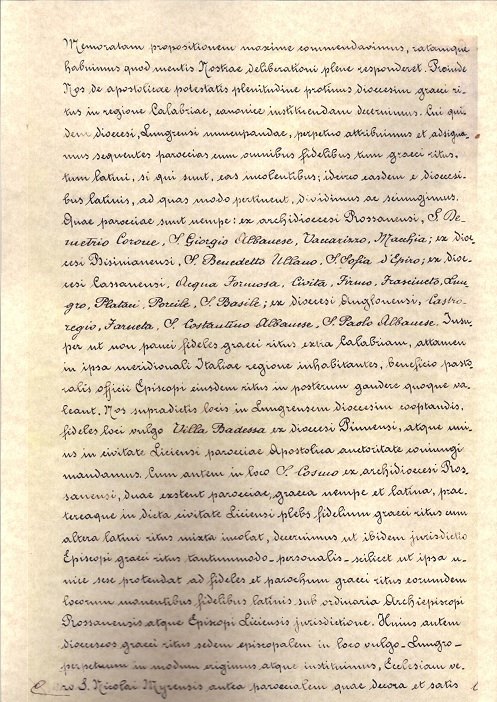 Memoratam propositionem maxime commendavimus, ratamque
habuimus quod mentis Nostrae deliberationi plene responderet. Proinde
Nos de apostolicae potestatis plenitudine protinus dioecesim graeci ri-
tus in regione Calabriae, canonice instituendam decernimus. Cui qui-
dem dioecesi, Lungrensi nuncupandae, perpetuo attribuimus et adsigna-
mus sequentes paroecias cum omnibus fidelibus tum graeci ritus,
tum latini, si qui sunt, eas incolentibus; idcirco easdem e dioecesi-
bus latinis, ad quas modo pertinent, dividimus ac seiungimus.
Quae paroeciae sunt nempe: ex archidioecesi Rossanensi, S. De-
metrio Corone, S. Giorgio Albanese, Vaccarizzo, Macchia; ex dioe-
cesi Bisinianensi, S. Benedetto Ullano, S. Sofia d'Epiro; ex dioe-
cesi Cassanensi, Acqua Formosa, Civita, Firmo, Frascineto, Lun-
gro, Plataci, Porcile, S. Basile; ex dioecesi Anglonensi, Castro-
regio, Farneta, S. Costantino Albanese, S. Paolo Albanese. Insu-
per ut non pauci fideles graeci ritus extra Calabriam, attamen
in ipsa meridionali Italiae regione inhabitantes, beneficio pasto-
ralis officii Episcopi eiusdem ritus in posterum gaudere quoque va-
leant. Nos supradictis locis in Lungrensem dioecesim cooptandis,
fideles loci vulgo Villa Badessa ex dioecesi Pinnensi, atque uni-
us in civitate Liciensi paroeciae Apostolica auctoritate coniungi
mandamus. Cum autem in loco S. Cosmo ex archidioecesi Ros-
sanensi, duae exstent paroeciae, graeca nempe et latina, prae-
tereaque in dicta civitate Liciensi plebs fidelium graeci ritus cum
altera latini ritus mixta incolat, decernimus ut ibidem jurisdictio
Episcopi graeci ritus tantummodo-personalis-scilicet ut ipsa u-
nice sese protendat ad fideles et parochum graeci ritus eorumdem
locorum manentibus fidelibus latinis sub ordinaria Archiepiscopi
Rossanensis atque Episcopi Liciensis jurisdictione. Huius autem
dioeceseos graeci ritus sedem episcopalem in loco vulgo-Lungro-
perpetuum in modum erigimus atque instituimus, Ecclesiam ve-
ro S. Nicolai Myrensis antea paroecialem quae decora et satis